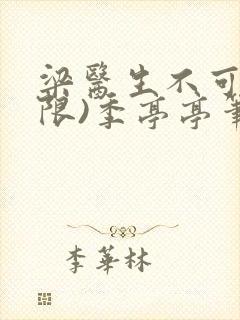 梁醫生不可
限)季亭亭筆
李華林